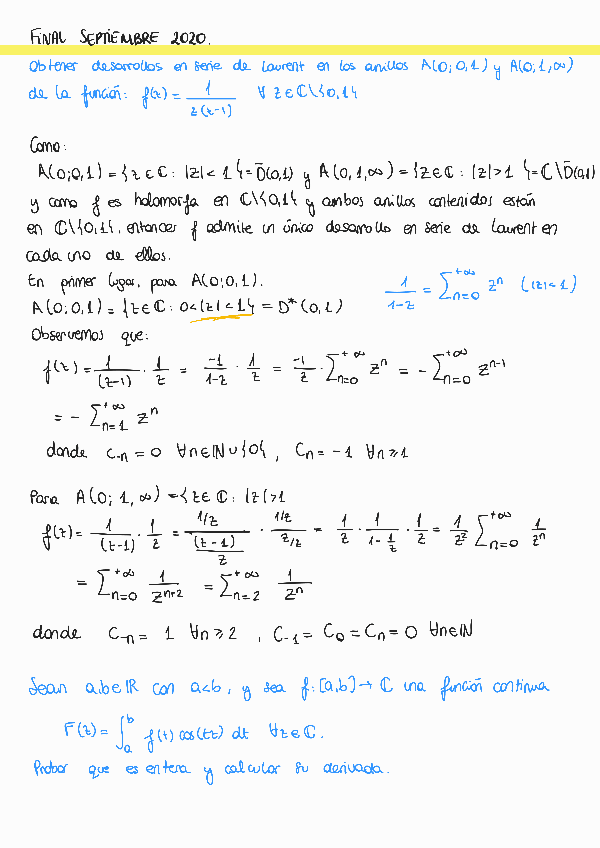 FINAL SEPTIEMBRE 2020.
Obtener desarrollos en serie de Laurent en los anillos A(0;0,1) y A(0;1,∞)
de la función: f(z) = 1/(z(z-1)) ∀ z∈ℂ\{0,1}
Como:
A(0;0,1) = {z∈ℂ: |z|<1} = D̄(0,1) y A(0,1,∞) = {z∈ℂ: |z|>1} = ℂ\D̄(0,1)
y como f es holomorfa en ℂ\{0,1} y ambos anillos contenidos están
en ℂ\{0,1}, entonces f admite un único desarrollo en serie de Laurent en
cada uno de ellos.
En primer lugar, para A(0;0,1).
1/(1-z) = ∑_{n=0}^{+∞} z^n (|z|<1)
A(0;0,1) = {z∈ℂ: 0<|z|<1} = D*(0,1)
Observemos que:
f(z) = 1/(z-1) · 1/z = -1/(1-z) · 1/z = -1/z · ∑_{n=0}^{+∞} z^n = - ∑_{n=0}^{+∞} z^{n-1}
= - ∑_{n=1}^{+∞} z^n
donde C_{-n} = 0 ∀n∈ℕ∪{0}, C_n = -1 ∀n≥1
Para A(0;1,∞) = {z∈ℂ: |z|>1
f(z) = 1/(z-1) · 1/z = (1/z)/((z-1)/z) · (1/z)/(z/z) = 1/z · 1/(1-1/z) · 1/z = 1/z² ∑_{n=0}^{+∞} 1/z^n
= ∑_{n=0}^{+∞} 1/z^{n+2} = ∑_{n=2}^{+∞} 1/z^n
donde C_{-n} = 1 ∀n≥2, C_{-1} = C_0 = C_n = 0 ∀n∈ℕ
Sean a,b∈ℝ con a<b, y sea f:[a,b]→ℂ una función continua
F(z) = ∫_a^b f(t) cos(tz) dt ∀z∈ℂ.
Probar que es entera y calcular su derivada.